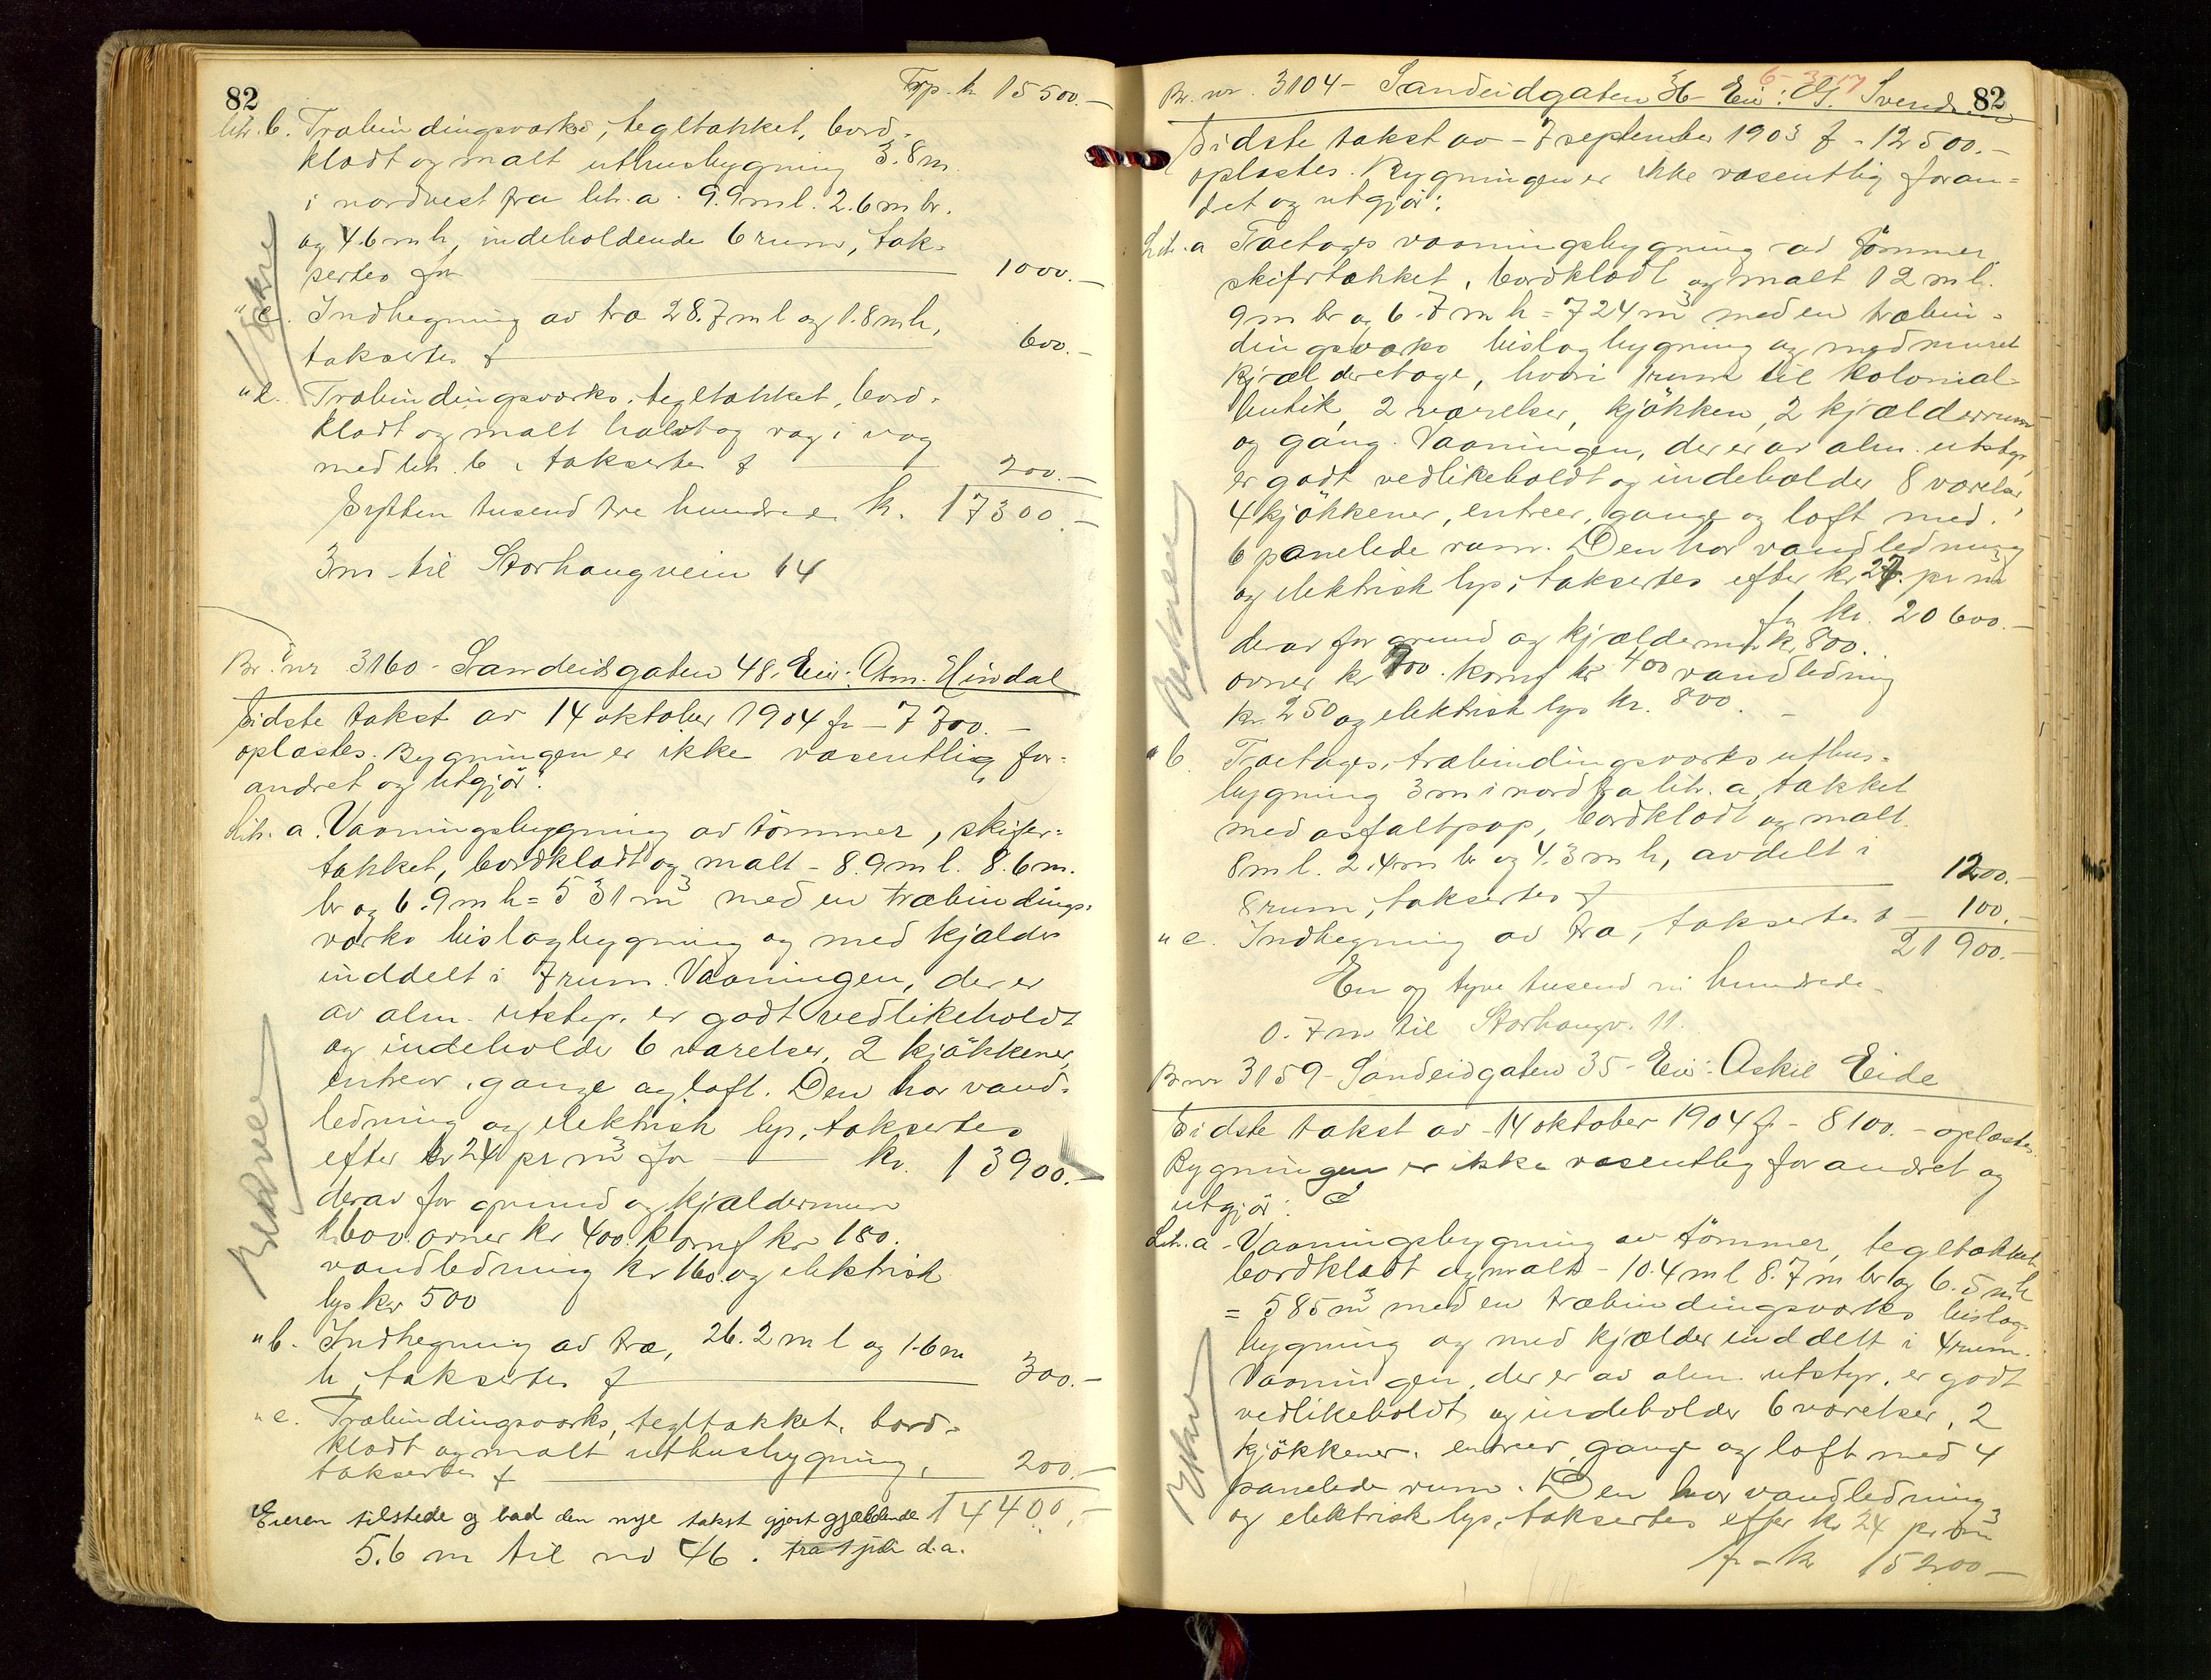 82
Trp. kr 15500.-
litr. b. Træbindingsværks, tegltækket, bord-
klædt og malt uthusbygning 3.8 m.
i nordvest fra litr. a. 9.9 m l. 2.6 m br.
og 4.6 m h, indeholdende 6 rum, tak-
sertes for 1000.-
" c. Indhegning av træ 28.7 m l og 1.8 m h,
takseres f 600.-
" d. Træbindingsverks, tegltækket, bord-
klædt og malt væg i væg
med litr. b, taksertes f 200.-
Sytten tusend tre hundrede kr. 17300.-
3 m til Storhaugvein 14
Br. nr 3160 - Sandeidgaten 48. Eier: Asm. Hindal
Sidste takst av 14 oktober 1904 fr - 7700.-
oplæstes. Bygningen er ikke væsentlig for-
andret og utgjør:
Litr. a. Vaaningsbyggning av tømmer, skifer-
tækket, bordklædt og malt - 8.9 m l. 8.6 m.
br og 6.9 m h = 531 m³ med en træbindings-
værks bislagbygning og med kjælder
inddelt i 7 rum. Vaaningen, der er
av alm. utstyr, er godt vedlikeholdt
og indeholder 6 værelser, 2 kjøkkener,
entreer, gange og loft. Den har vand-
ledning og elektrisk lys, taksertes
efter kr 24 pr m³ for kr. 13900.-
derav for grund og kjældermur
k 600. ovner kr 400. komf kr 180.
vandledning kr 160. og elektrisk
lys kr 500
" b. Indhegning av træ, 26.2 m l og 1.6 m
h, taksertes f 300.-
" c. Træbindingsværks, tegltækket, bord-
klædt og malt uthusbygning,
taksertes f 200.-
Eieren tilstede og bad den nye takst gjort gjældende 14400.-
5.6 m til no 46. fra 1 juli d.a.
82
6-3-17
Br. nr. 3104 - Sandeidgaten 36 - Eier: G. Svends
Sidste takst av - 7 september 1903 f - 12500.-
oplæstes. Bygningen er ikke væsentlig foran-
dret og utgjør:
Litr. a Toetages vaaningsbygning av tømmer
skifertækket, bordklædt og malt 12 m l.
9 m br og 6.7 m h = 724 m³ med en træbin-
dingsværks bislagbygning og med muret
kjælderetage, hvori 1 rum til kolonial-
butik, 2 værelser, kjøkken, 2 kjælderrum
og gang. Vaaningen, der er av alm. utstyr,
er godt vedlikeholdt og indeholder 8 værelser,
4 kjøkkener, entreer, gange og loft med
6 panelede rum. Den har vandledning
og elektrisk lys, taksertes efter kr 27. pr m³
for kr. 20600.-
derav for grund og kjældermur kr 800.
ovner kr 700. komf kr 400 vandledning
kr. 250 og elektrisk lys kr. 800.-
" b. Toetages, træbindingsværks uthus-
bygning 3 m i nord fra litr. a, tækket
med asfaltpap, bordklædt og malt.
8 m l. 2.4 m br og 4.3 m h, avdelt i
8 rum, taksertes f 1200.-
" c. Indhegning av træ, taksertes f - 100.-
21900.-
En og tyve tusend ni hundrede.
0.7 m til Storhaugv. 11.
Br nr 3159 - Sandeidgaten 35 - Eier: Askil Eide
Sidste takst av - 14 oktober 1904 fr - 8100.- oplæstes.
Bygningen er ikke væsentlig forandret og
utgjør:
Litr. a - Vaaningsbygning av tømmer, tegltækket
bordklædt og malt - 10.4 m l 8.7 m br og 6.5 m h
= 585 m³ med en træbindingsværks bislag-
bygning og med kjælder inddelt i 4 rum.
Vaaningen, der er av alm utstyr, er godt
vedlikeholdt og indeholder 6 værelser, 2
kjøkkener, entreer, gange og loft med 4
panelede rum. Den har vandledning
og elektrisk lys, taksertes efter kr 24 pr m³
fr - kr 15200-